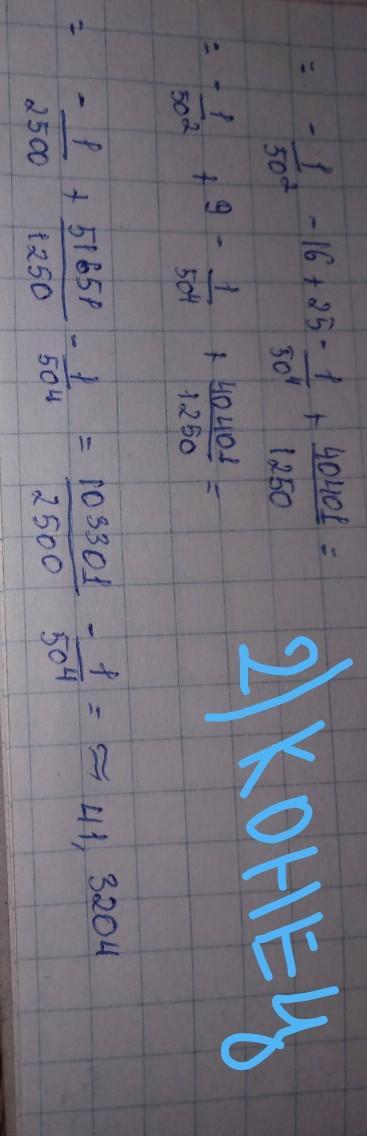 = - 1/50² - 16 + 25 - 1/50⁴ + 40401/1250 =
= - 1/50² + 9 - 1/50⁴ + 40401/1250 =
= - 1/2500 + 51651/1250 - 1/50⁴ = 103301/2500 - 1/50⁴ = ≈ 41,3204
2) КОНЕЦ